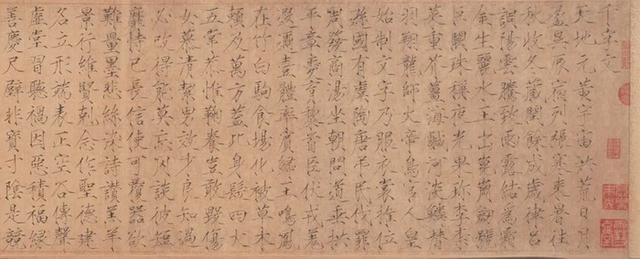 千字文
天地元黄宇宙洪荒日月
盈昃辰宿列張寒來暑往
秋收冬藏閏餘成歲律吕
調陽雲騰致雨露結為霜
金生麗水玉出崑崗劍號
巨闕珠稱夜光果珍李柰
菜重芥薑海鹹河淡鱗潛
羽翔龍師火帝鳥官人皇
始制文字乃服衣裳推位
遜國有虞陶唐弔民伐罪
周發商湯坐朝問道垂拱
平章愛育黎首臣伏戎羌
遐邇壹體率賓歸王鳴鳳
在竹白駒食場化被草木
賴及萬方蓋此身髮四大
五常恭惟鞠養豈敢毀傷
女慕清絜男效才良知過
必改得能莫忘罔談彼短
靡恃己長信使可覆器欲
難量墨悲絲染詩讚羔羊
景行維賢剋念作聖德建
名立形端表正空谷傳聲
虛堂習聽禍因惡積福緣
善慶尺璧非寶寸陰是競